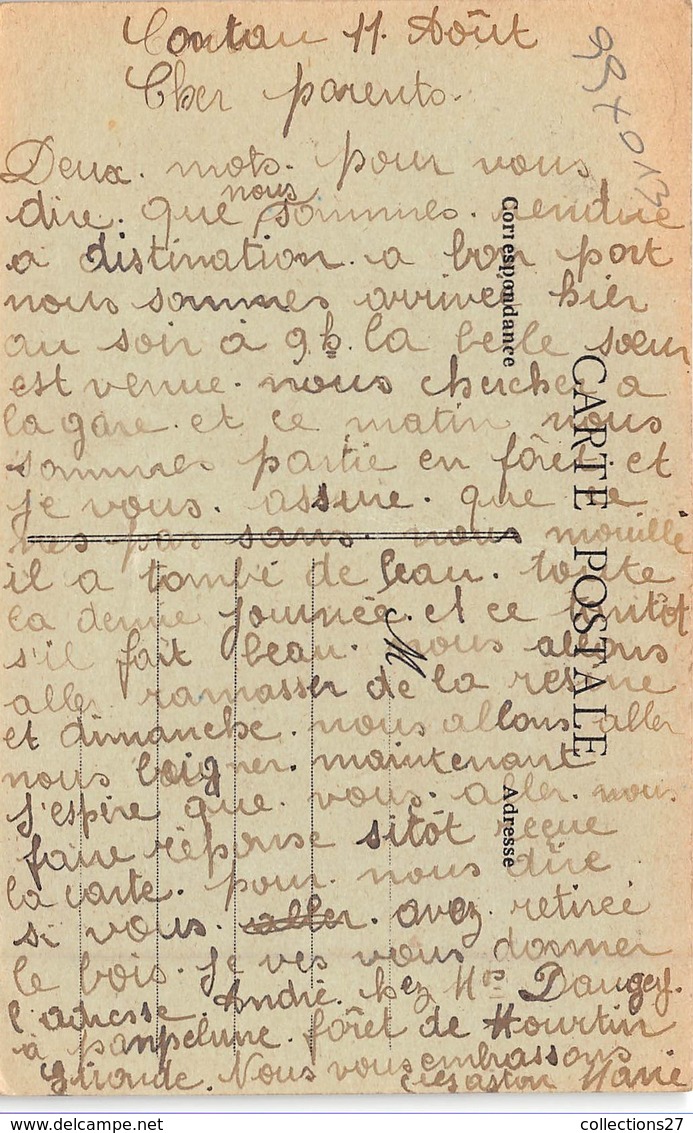 11 Août
Cher parents.
Deux. mots. pour vous
nous
dire. que sommes. rendue
a distination. a bon port
nous sommes arrivée hier
au soir à 9h. la belle sœur
est venue. nous chercher a
la gare. et ce matin nous
sommes partie en fôret et
je vous. assure. que ce
nes pas sans. nous mouillé
il a tombé de leau. toute
la demie journée. et ce tantôt
s'il fait beau. nous allons
aller ramasser de la resine
et dimanche. nous allons aller
nous baigner. maintenant
j'espire que. vous. aller. nous
faire réponse sitôt reçue
la carte. pour. nous dire
si vous. aller. avez. retirée
le bois. Je ves vous donner
l'adresse. André. chez Mr
à panpelune. fôret de Hourtin
Gironde. Nous vous embrassons
Marie
CARTE POSTALE
Correspondance
Adresse
M
collections27